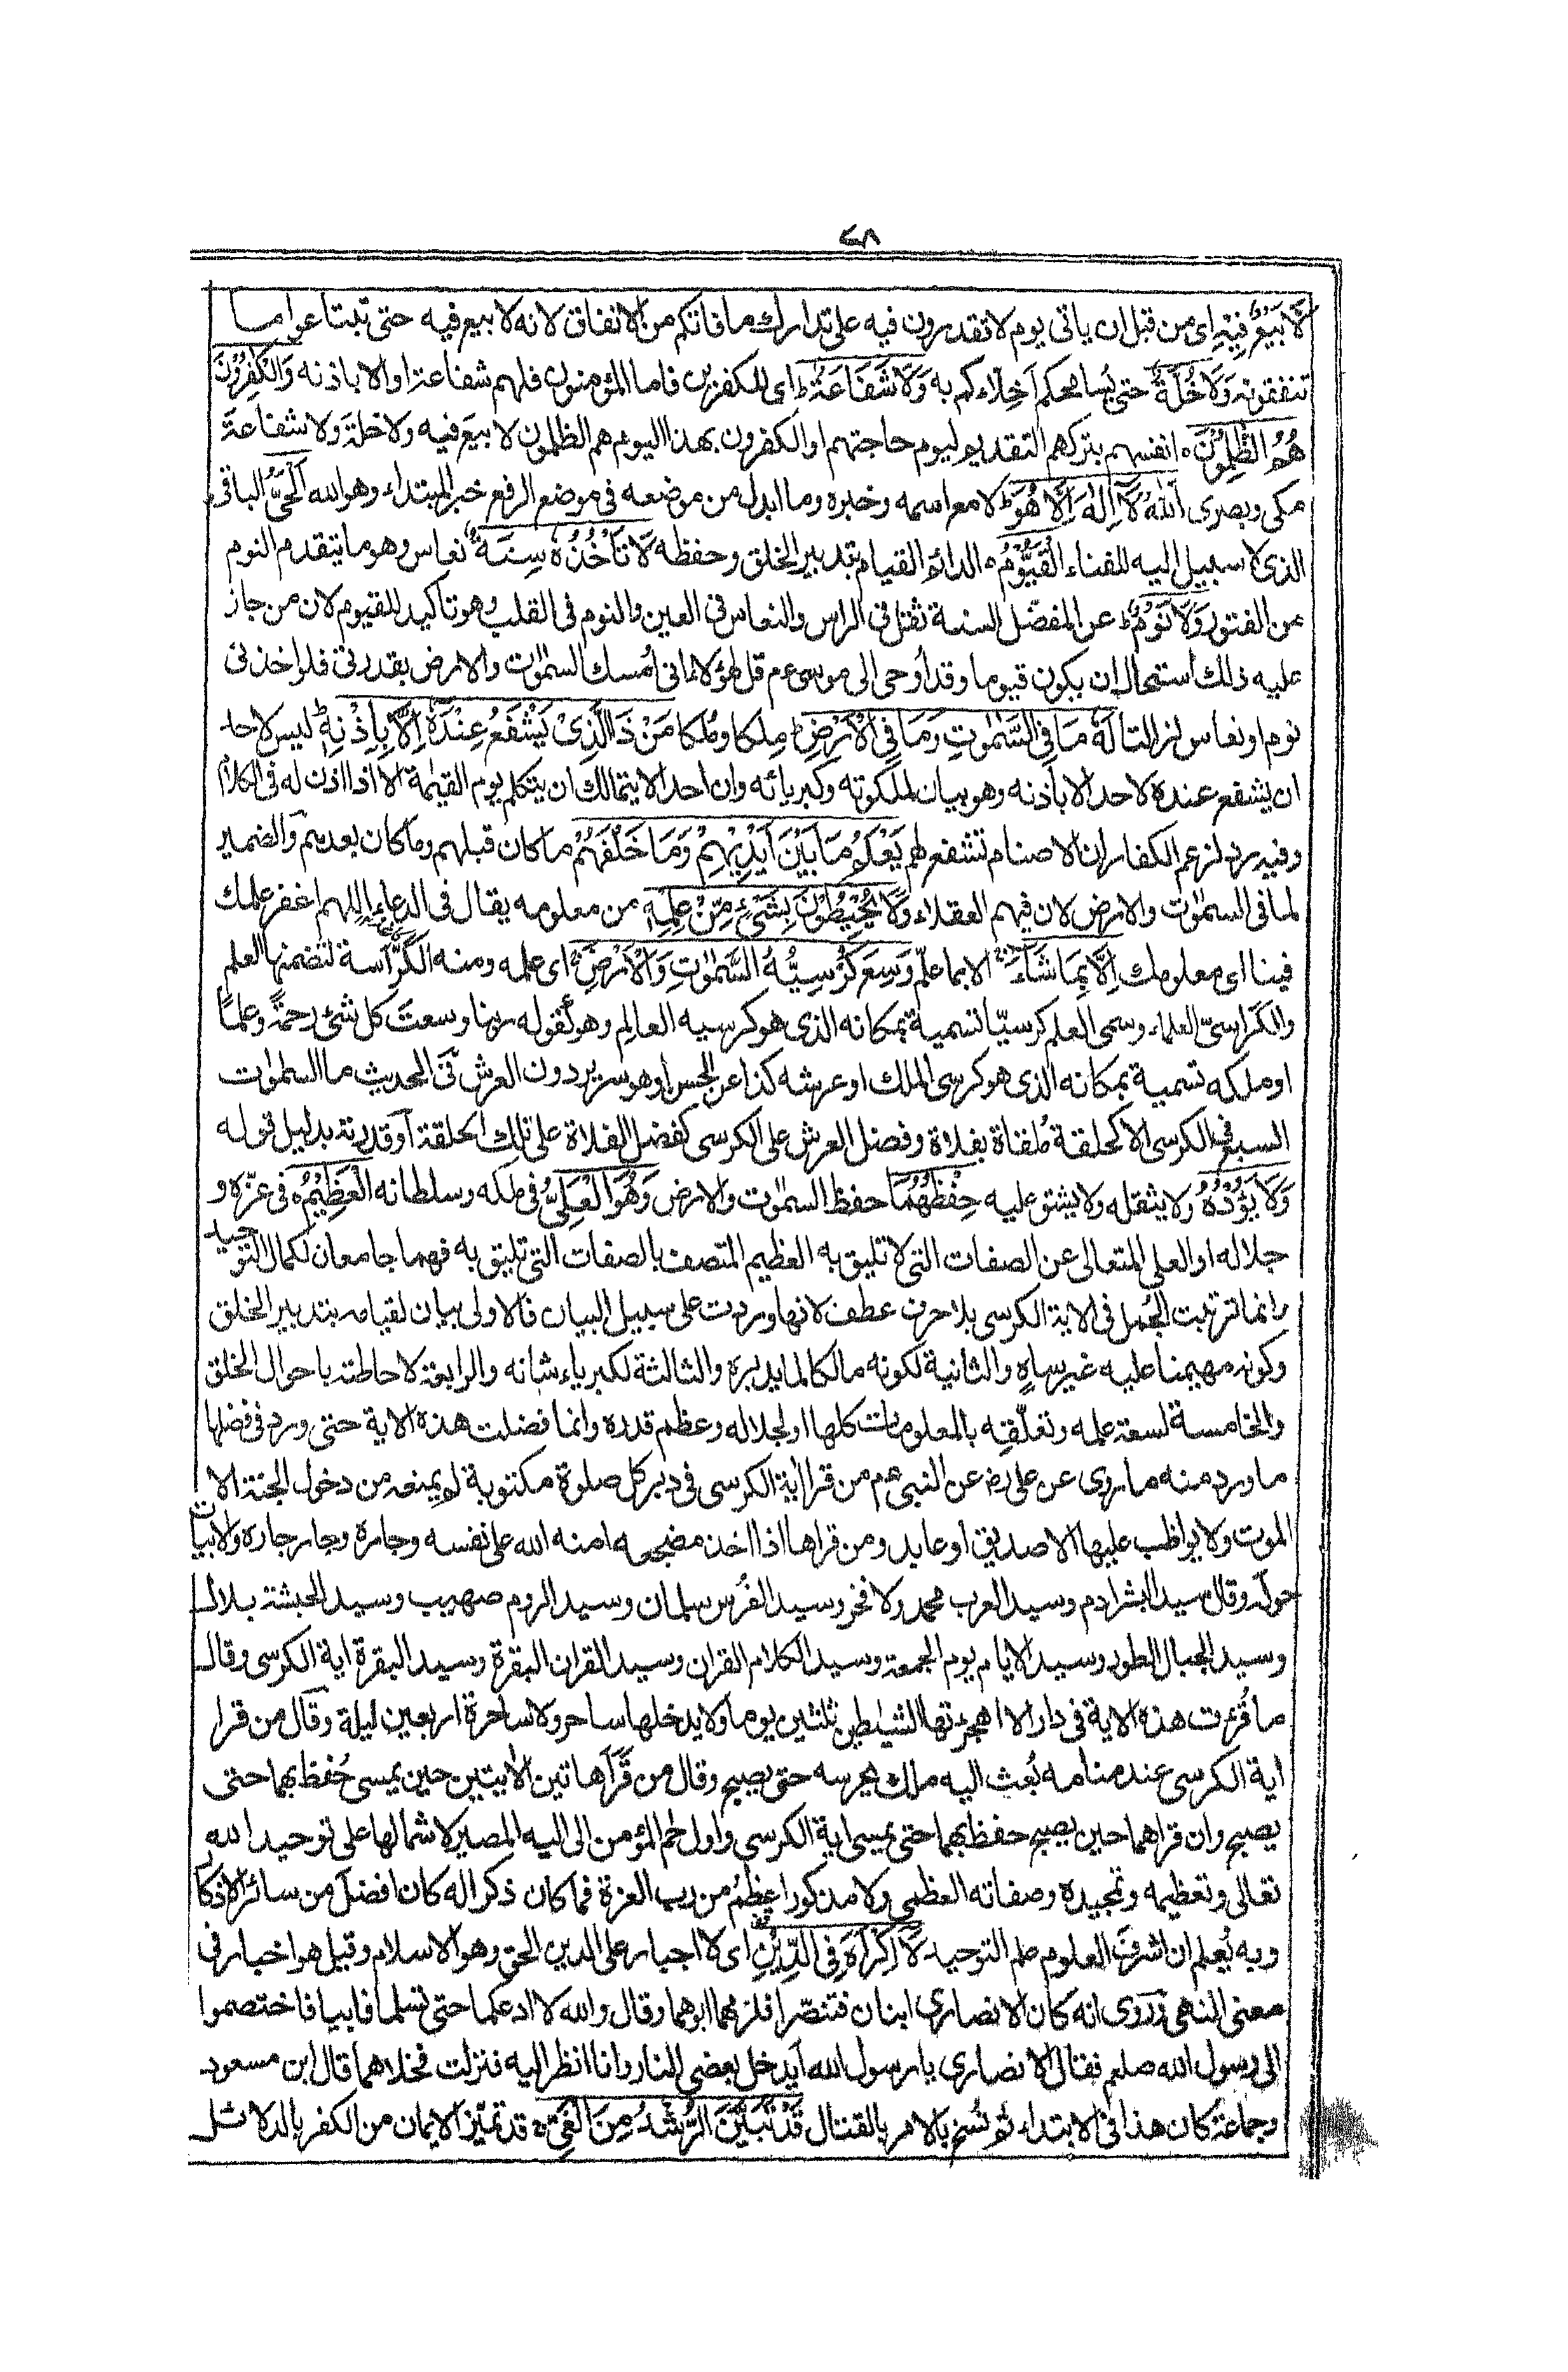 ٧٨
لَّا بَيْعٌ فِيْهِ اى من قبل ان ياتى يوم لا تقدرون فيه على تدارك ما فاتكم من الانفاق لانه لا بيع فيه حتى تبتاعوا ما
تنفقونه وَلَا خُلَّةٌ حتى يسامحكم اَخِلّاءكم به وَلَا شَفَاعَةٌ ط اى للكفرين فاما المؤمنون فلهم شفاعة او الا باذنه وَالْكٰفِرُوْنَ
هُمُ الظّٰلِمُوْنَ ہ انفسهم بتركهم التقديم ليوم حاجتهم او الكفرون بهذا اليوم هم الظلمون لا بيعَ فيه ولا خلةَ ولا شفاعةَ
مكى وبصرى اَللّٰهُ لَآ اِلٰهَ اِلَّا هُوَ ط لا مع اسمه وخبره وما ابدل من موضعه فى موضع الرفع خبر المبتداء وهو الله اَلْحَىُّ الباقى
الذى لا سبيل اليه للفناء الْقَيُّوْمُ ہ الدائم القيام بتدبير الخلق وحفظه لَا تَاْخُذُهٗ سِنَةٌ نعاس وهو ما يتقدم النوم
من الفتور وَلَا نَوْمٌ ط عن المفضّل السنة ثقل فى الراس والنعاس فى العين والنوم فى القلب وهو تاكيد للقيوم لان من جاز
عليه ذلك استحال ان يكون قيوما وقد اوحى الى موسى عم قل لهؤلاء انى اُمسك السمٰوٰت والارض بقدرتى فلو اخذنى
نوم او نعاس لزالتا لَهٗ مَا فِى السَّمٰوٰتِ وَمَا فِى الْاَرْضِ ط مِلكا ومُلكا مَنْ ذَا الَّذِىْ يَشْفَعُ عِنْدَهٗٓ اِلَّا بِاِذْنِهٖ ط ليس لاحد
ان يشفع عنده لاحد الا باذنه وهو بيان لملكوته وكبريائه وان احدا لا يتمالك ان يتكلم يوم القيٰمة الا اذا اذن له فى الكلام
وفيه رد لزعم الكفار ان الاصنام تشفع لهم يَعْلَمُ مَا بَيْنَ اَيْدِيْهِمْ وَمَا خَلْفَهُمْ ما كان قبلهم وما كان بعدهم والضمير
لما فى السمٰوٰت والارض لان فيهم العقلاء وَلَا يُحِيْطُوْنَ بِشَىْءٍ مِّنْ عِلْمِهٖ من معلومه يقال فى الدعاء اللهم اغفر علمك
فينا اى معلومك اِلَّا بِمَا شَآءَ الا بما علّم وَسِعَ كُرْسِيُّهُ السَّمٰوٰتِ وَالْاَرْضَ اى علمه ومنه الكُرّاسة لتضمنها العلم
والكراسىّ العلماء وسمى العلم كرسيّا تسمية بمكانه الذى هو كرسيه العالم وهو كقوله ربنا وسعت كل شئ رحمةً وعلماً
او ملكه تسمية بمكانه الذى هو كرسى الملك او عرشه كذا عن الحسن او هو سرير دون العرش فى الحديث ما السمٰوٰت
السبع فى الكرسى الا كحلقة مُلقاة بفلاة وفضل العرش على الكرسى كفضل الفلاة على تلك الحلقة او قدرته بدليل قوله
وَلَا يَؤُدُهٗ ولا يثقله ولا يشق عليه حِفْظُهُمَا حفظ السمٰوٰت والارض وَهُوَ الْعَلِىُّ فى ملكه وسلطانه الْعَظِيْمُ ہ فى عزّه و
جلاله او العلى المتعالى عن الصفات التى لا تليق به العظيم المتصف بالصفات التى تليق به فهما جامعان لكمال التوحيد
وانما ترتبت الجُمل فى الاية الكرسى بلا حرف عطف لانها وردت على سبيل البيان فالاولى بيان لقيامه بتدبير الخلق
وكونه مهيمنا عليه غير ساهٍ والثانية لكونه مالكا لما يدبره والثالثة لكبرياء شانه والرابعة لاحاطته باحوال الخلق
والخامسة لسعة علمه وتعلّقه بالمعلومات كلها او لجلاله وعظم قدره وانما فضلت هذه الاية حتى ورد فى فضلها
ما ورد منه ما روى عن على رض عن النبى عم من قرا اية الكرسى فى دبر كل صلوة مكتوبة لم يمنعه من دخول الجنة الا
الموت ولا يواظب عليها الا صديق او عابد ومن قراها اذا اخذ مضجعه امنه الله على نفسه وجاره وجار جاره والابيات
حوله وقال سيد البشر ادم وسيد العرب محمد ولا فخر وسيد الفُرس سلمان وسيد الروم صهيب وسيد الحبشة بلال
وسيد الجبال الطور وسيد الايام يوم الجمعة وسيد الكلام القران وسيد القران البقرة وسيد البقرة اية الكرسى وقال
ما قُرِءت هذه الاية فى دار الا اهجرتها الشيٰطين ثلثين يوما ولا يدخلها ساحر ولا ساحرة اربعين ليلة وقال من قرا
اية الكرسى عند منامه بُعث اليه ملك يحرسه حتى يصبح وقال من قَرَاَ هاتين الايتين حين يمسى حُفظ بهما حتى
يصبح وان قراهما حين يصبح حفظ بهما حتى يمسى اية الكرسى واول حٰم المؤمن الى اليه المصير لاشتمالها على توحيد الله
تعالى وتعظيمه وتمجيده وصفاته العظمى ولا مذكور اعظمُ من رب العزة فما كان ذكرا له كان افضل من سائر الاذكار
وبه يُعلم ان اشرف العلوم علم التوحيد لَآ اِكْرَاهَ فِى الدِّيْنِ اى لا اجبار على الدين الحق وهو الاسلام وقيل هو اخبار فى
معنى النهى وروى انه كان لانصارى ابنان فتنصّرا فلزمهما ابوهما وقال والله لا ادعكما حتى تسلما فابيا فاختصموا
الى رسول الله صلعم فقال الانصارى يا رسول الله ايدخل بعضى النار وانا انظر اليه فنزلت فخلاهما قال ابن مسعود
وجماعة كان هذا فى الابتداء ثم نُسخ بالامر بالقتال قَدْ تَّبَيَّنَ الرُّشْدُ مِنَ الْغَىِّ قد تميّز الايمان من الكفر بالدلائل